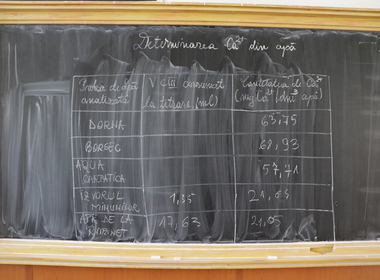 Determinarea Ca²⁺ din apă
Proba de apă analizată
V CIII consumat la titrare (ml)
Cantitatea de Ca²⁺ (mg Ca²⁺/dm³ apă)
DORNA 63,75
BORSEC 68,93
AQUA CARPATICA 57,71
IZVORUL MINUNILOR 1,35
APĂ DE LA ROBINET 17,63 21,05